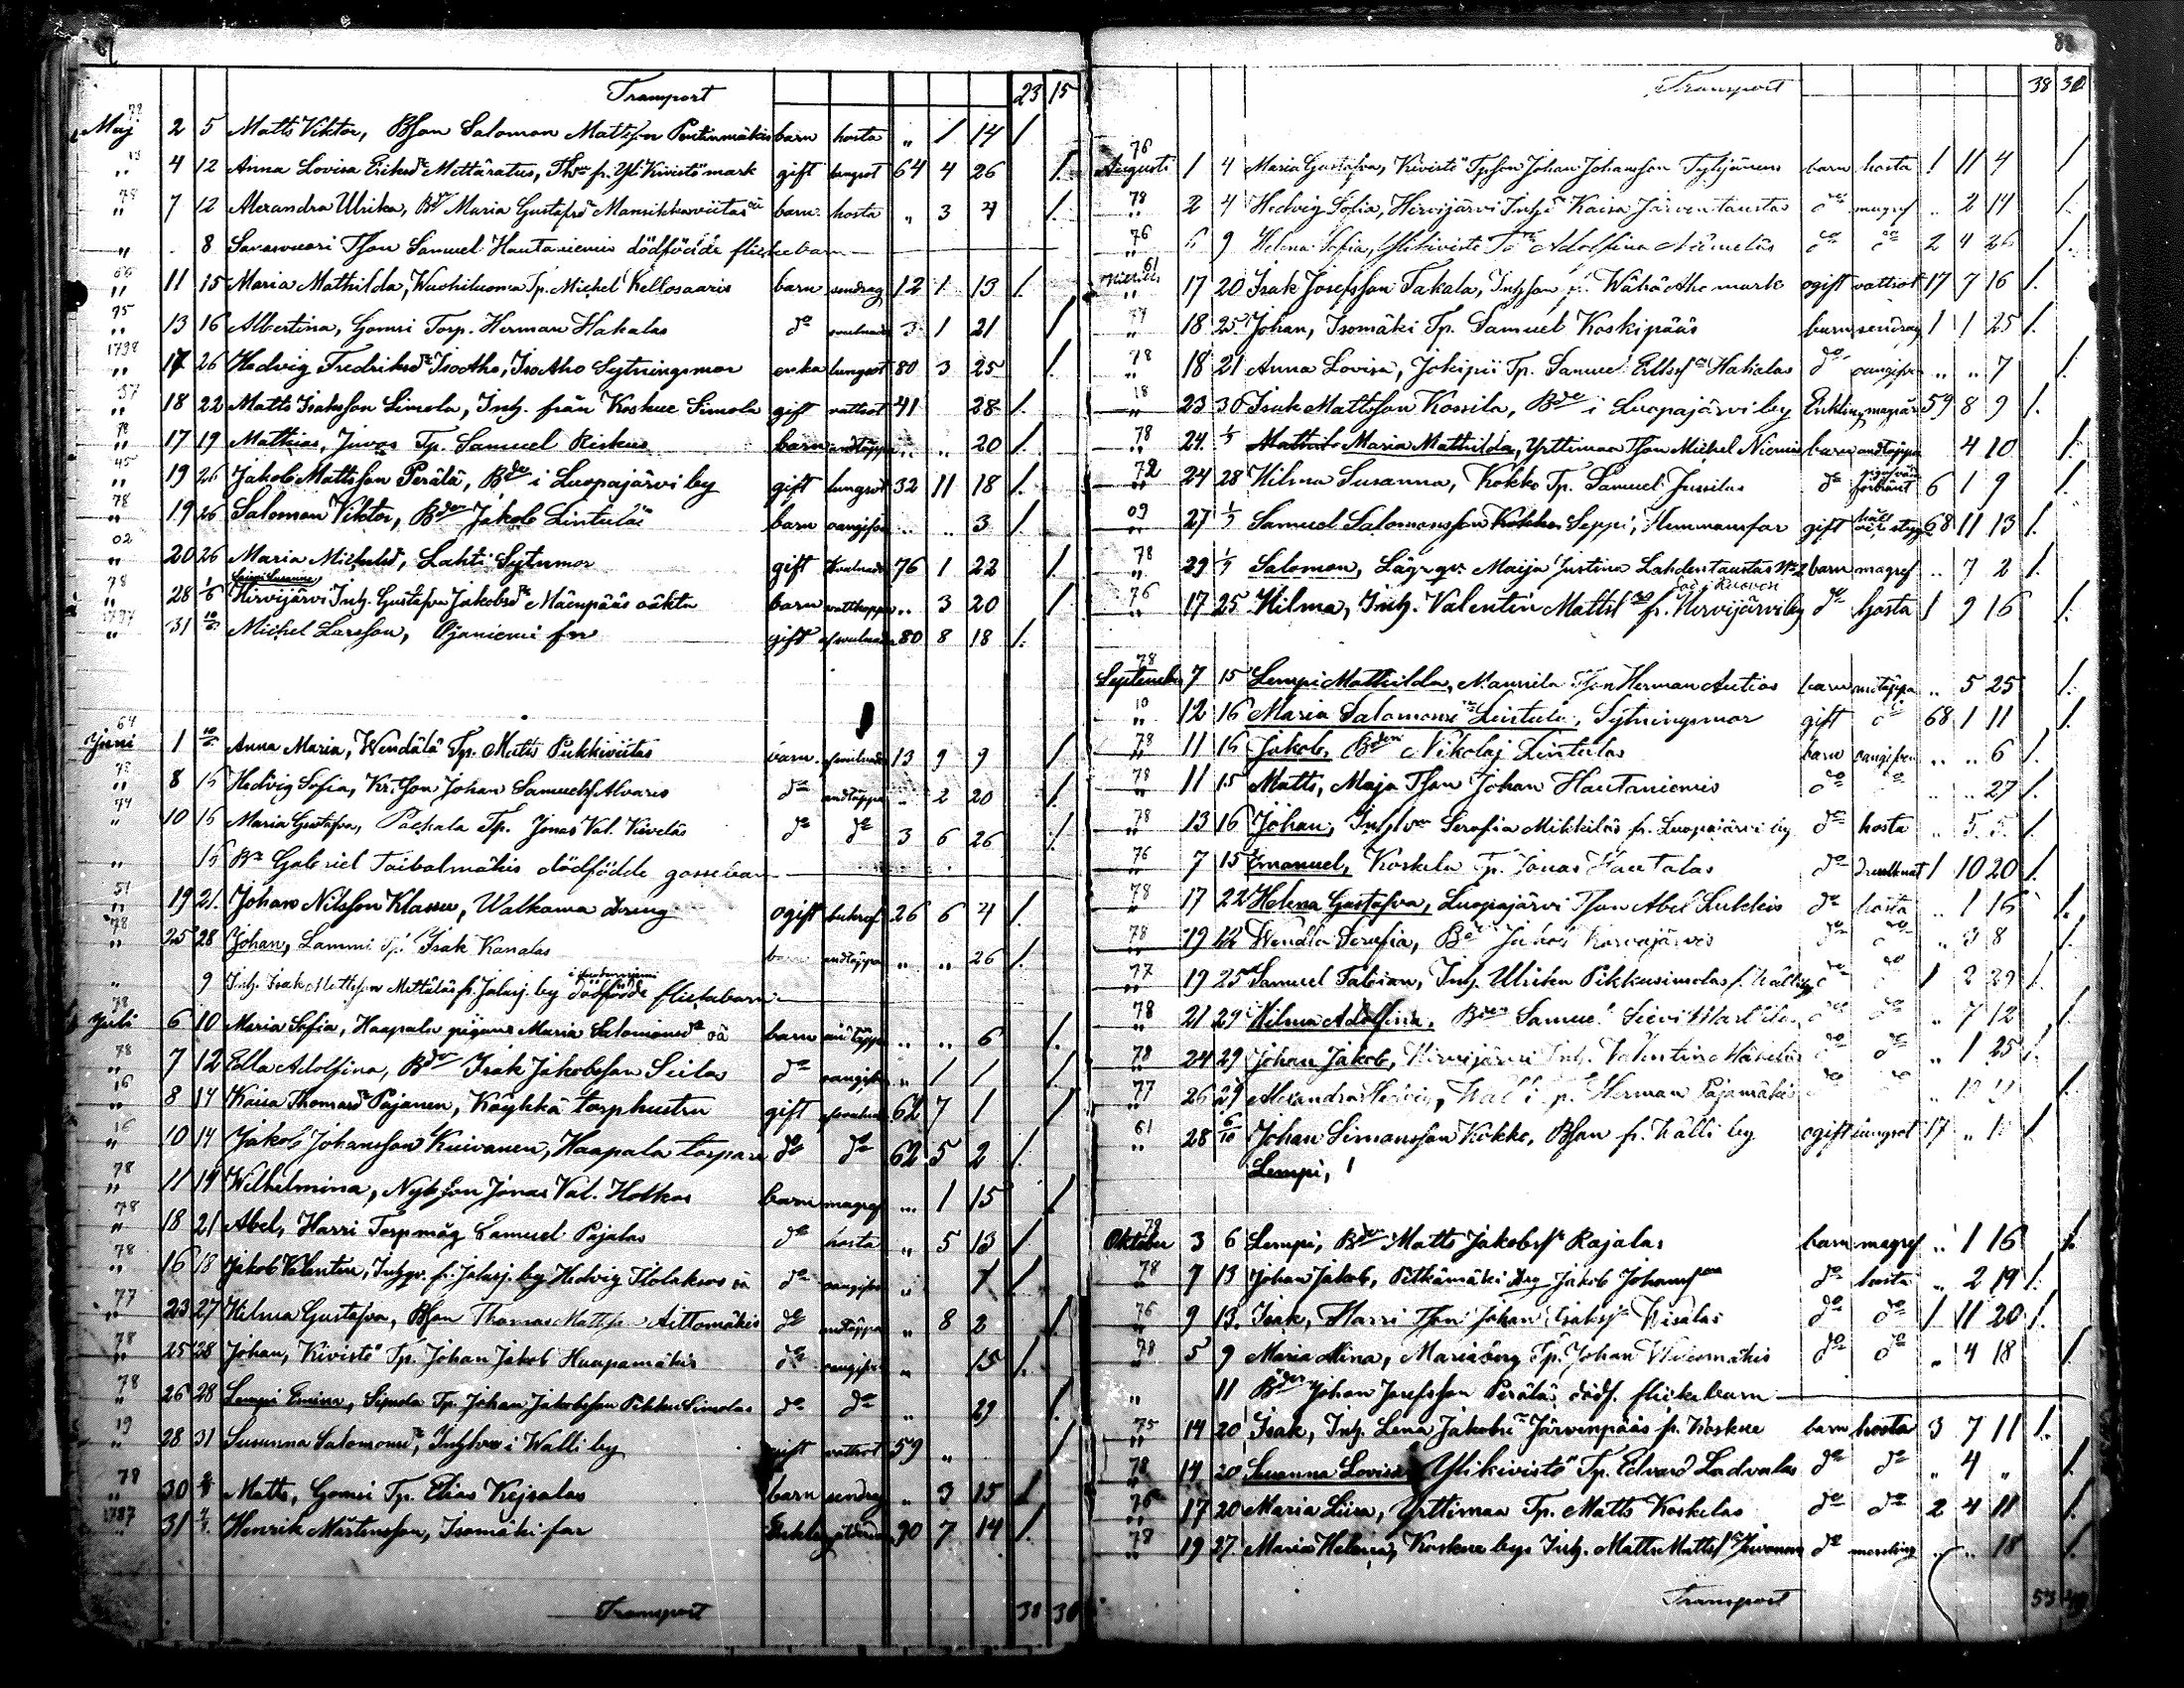 Transport 23 15
78
Maj 2 5 Matts Viktor, BSon Salomon Mattsson Pentinmäkis barn hosta „ 1 14 1
„ 4 12 Anna Lovisa Eriksd Mettäratus, fr. Yli Kivistö mark gift lungsot 64 4 26 1.
78
„ 7 12 Alexandra Ulrika, Maria Gustafsd Mansikkaviitas oä barn hosta „ 3 4 1.
„ 8 Savaswuori TSon Samuel Hautaniemis dödfödde flickebarn
66
„ 11 15 Maria Mathilda, Wuohiluoma Tp. Michel Kellosaaris barn sendrag 12 1 13 1.
75
„ 13 16 Albertina, Gomsi Torp. Herman Hakalas do 3 1 21 1
1798
„ 17 26 Hedvig Fredriksd IsoAho, IsoAho Sytningsmor enka lungsot 80 3 25 1.
37
„ 18 22 Matts Isaksson Simola, Inh. från Koskue Simola gift vattsot 41 28 1.
78
„ 17 19 Mathias, Juvos Tp. Samuel Riskus barn andtäppa „ „ 20 1
45
„ 19 26 Jakob Mattsson Perälä, Bde i Luopajärvi by gift lungsot 32 11 18 1.
78
„ 19 26 Salomon Viktor, Bden Jakob Lintulas barn oangifven „ „ 3 1.
02
„ 20 26 Maria Michelsd, Lahti Sytnmor gift 76 1 22 1.
78 Susanna
„ 28 1/6 Hirvijärvi Inh. Gustafva Jakobsd Mäenpääs oäkta barn vattkoppor „ 3 20 1
1797
„ 31 10/6 Michel Larsson, Ojaniemi fr gift 80 8 18 1.
64
Juni 1 10/ Anna Maria, Wendälä Tp. Matts Pukkiviitas barn 13 9 9 1
78
„ 8 15 Hedvig Sofia, Kr. TSon Johan Samuels Alvares do andtäppa „ 2 20 1.
74
„ 10 16 Maria Gustafva, Packala Tp. Jonas Val. Kiveläs do do 3 6 26 1.
„ 15 Gabriel Taibalmäkis dödfödde gossebarn
51
„ 19 21. Johan Nilsson Klasser, Walkama dreng ogift bukref 26 6 4 1.
78
„ 25 28 Johan, Lammi Tp. Isak Kanalas barn andtäppa „ „ 26 1.
„ 9 Inh. Isak Mattsson Mettäläs fr. Jalasj. by dödfödde flickebarn
78
Juli 6 10 Maria Sofia, Haapala pigans Maria Salomonsd oä barn andtäppa „ „ 6 1.
78
„ 7 12 Ella Adolfina, Bde Isak Jakobsson Seilas do oangifven „ 1 1 1
16
„ 8 14 Kaisa Thomasd Pajanen, Köykkä torphustru gift 62 7 1 1
16
„ 10 14 Jakob Johansson Kuivanen, Haapala torpare do do 62 5 2 1.
78
„ 11 14 Wilhelmina, Nyb.Son Jonas Val. Holkas barn magref „ 1 15 1
78
„ 18 21 Abel, Harri Torpmåg Samuel Pajalas do hosta „ 5 13 1
78
„ 16 18 Jakob Valentin, Inhqv. fr. Jalasj. by Hedvig oä do oangifven „ 7 1
77
„ 23 27 Hilma Gustafva, BSon Thomas Mattsson Aittomäkis do andtäppa „ 8 2 1
78
„ 25 28 Johan, Kivistö Tp. Johan Jakob Haapamäkis do oangifven „ 15 1.
78
„ 26 28 Lempi Emina, Simola Tp. Johan Jakobsson Pikku Simolas do do „ 29 1.
19
„ 28 31 Susanna Salomonsd, Inhhu i Walli by gift vattsot 59 „ 1
78
„ 30 Matts, Gomsi Tp. Elias Kejsalas barn sendrag „ 3 15 1
1787
„ 31 Henrik Mårtensson, Isomäki far Enkling 90 7 14 1.
Transport 38 30
88
Transport 38 30
76
Augusti 1 4 Maria Gustafva, Kivistö TpSon Johan Johansson Tyhjänens barn hosta 1 11 4 1
78
„ 2 4 Hedvig Sofia, Hirvijärvi Inh. Kaisa Järventaustas do magref „ 2 14 1.
76
„ 6 9 Helena Sofia, Ylikivistö Adolfina Niemeläs do do 2 4 26 1.
61
„ 17 20 Isak Josefsson Takala, Inhson fr. WähäAho mark ogift vattsot 17 7 16 1.
77
„ 18 25 Johan, Isomäki Tp. Samuel Koskipääs barn sendrag 1 1 25 1.
78
„ 18 21 Anna Lovisa, Jokipii Tp. Samuel Hakalas do oangifven „ „ 7 1.
18
„ 23 30 Isak Mattsson Kossila, Bde i Luopajärvi by Enkling magplåga 59 8 9 1.
78
„ 24 1/9 Maria Mathilda, Yrttimaa TSon Michel Niemis barn andtäppa 4 10 1.
72
„ 24 28 Hilma Susanna, Kokko Tp. Samuel Jussilas do förbränt 6 1 9 1.
09
„ 27 1/9 Samuel Salomonsson Kokko Seppi, Hemmansfar gift håll och styng 68 11 13 1.
78
„ 29 1/9 Salomon, Lägqv. Maija Justina Lahdentaustas barn magref „ 7 2 1.
76
„ 17 25 Hilma, Inh. Valentin Mattss fr. Hirvijärvi by do hosta 1 9 16 1.
78
September 7 15 Lempi Mathilda, Mannila TSon Herman Autios barn andtäppa „ 5 25 1.
10
„ 12 16 Maria Salomonsd Lintula, Sytningsmor gift do 68 1 11 1.
78
„ 11 16 Jakob, Bden Nikolaj Lintulas barn oangifven „ „ 6 1.
78
„ 11 15 Matts, Maja TSon Johan Hautaniemis do do „ „ 27 1.
78
„ 13 16 Johan, Serafia Mikkiläs fr. Luopajärvi by do hosta „ 5 5 1.
76
„ 7 15 Emanuel, Koskela Tp. Jonas Hautalas do drunknat 1 10 20 1.
78
„ 17 22 Helena Gustafva, Luopajärvi TSon Abel Lukkis do hosta „ 1 16 1.
78
„ 19 22 Wendla Serafia, Jakob Korvajärvis do do „ 3 8 1.
77
„ 19 25 Samuel Fabian, Inh. Ulrika Pikkusimolas fr. Walli by do do 1 2 29 1.
78
„ 21 29 Hilma Adolfina, Bden Samuel do do „ 7 12 1.
78
„ 24 29 Johan Jakob, Hirvijärvi Inh. Valentin Mäkeläs do do „ 1 25 1.
77
„ 26 29 Alexandra Hedvig, Herman Pajamäkis do do 1.
61
„ 28 6/10 Johan Simonsson Kokko, BSon fr. Walli by ogift lungsot 17 „ 1
Lempi,
78
Oktober 3 6 Lempi, Bden Matts Jakobss Rajalas barn magref „ 1 16 1.
78
„ 7 13 Johan Jakob, Pitkämäki drg Jakob Johanss do hosta „ 2 19 1.
76
„ 9 13. Isak, Harri TSon Johan Isakss Wisalas do do 1 11 20 1.
78
„ 5 9 Maria Mina, Mariaberg Tp. Johan do do „ 4 18 1
„ 11 Bden Johan Josefsson Peräläs dödf. flickebarn
75
„ 14 20 Isak, Inh. Lena Jakobsd Järvenpääs fr. Koskue barn hosta 3 7 11 1.
78
„ 14 20 Susanna Lovisa Ylikivistö Tp. Edvard Ladvalas do do „ 4 „ 1.
76
„ 17 20 Maria Liisa, Yrttimaa Tp. Matts Koskelas do do 2 4 11 1.
78
„ 19 27. Maria Helena, Koskue bys Inh. Matts Mattss do messling „ „ 18 1.
Transport 53